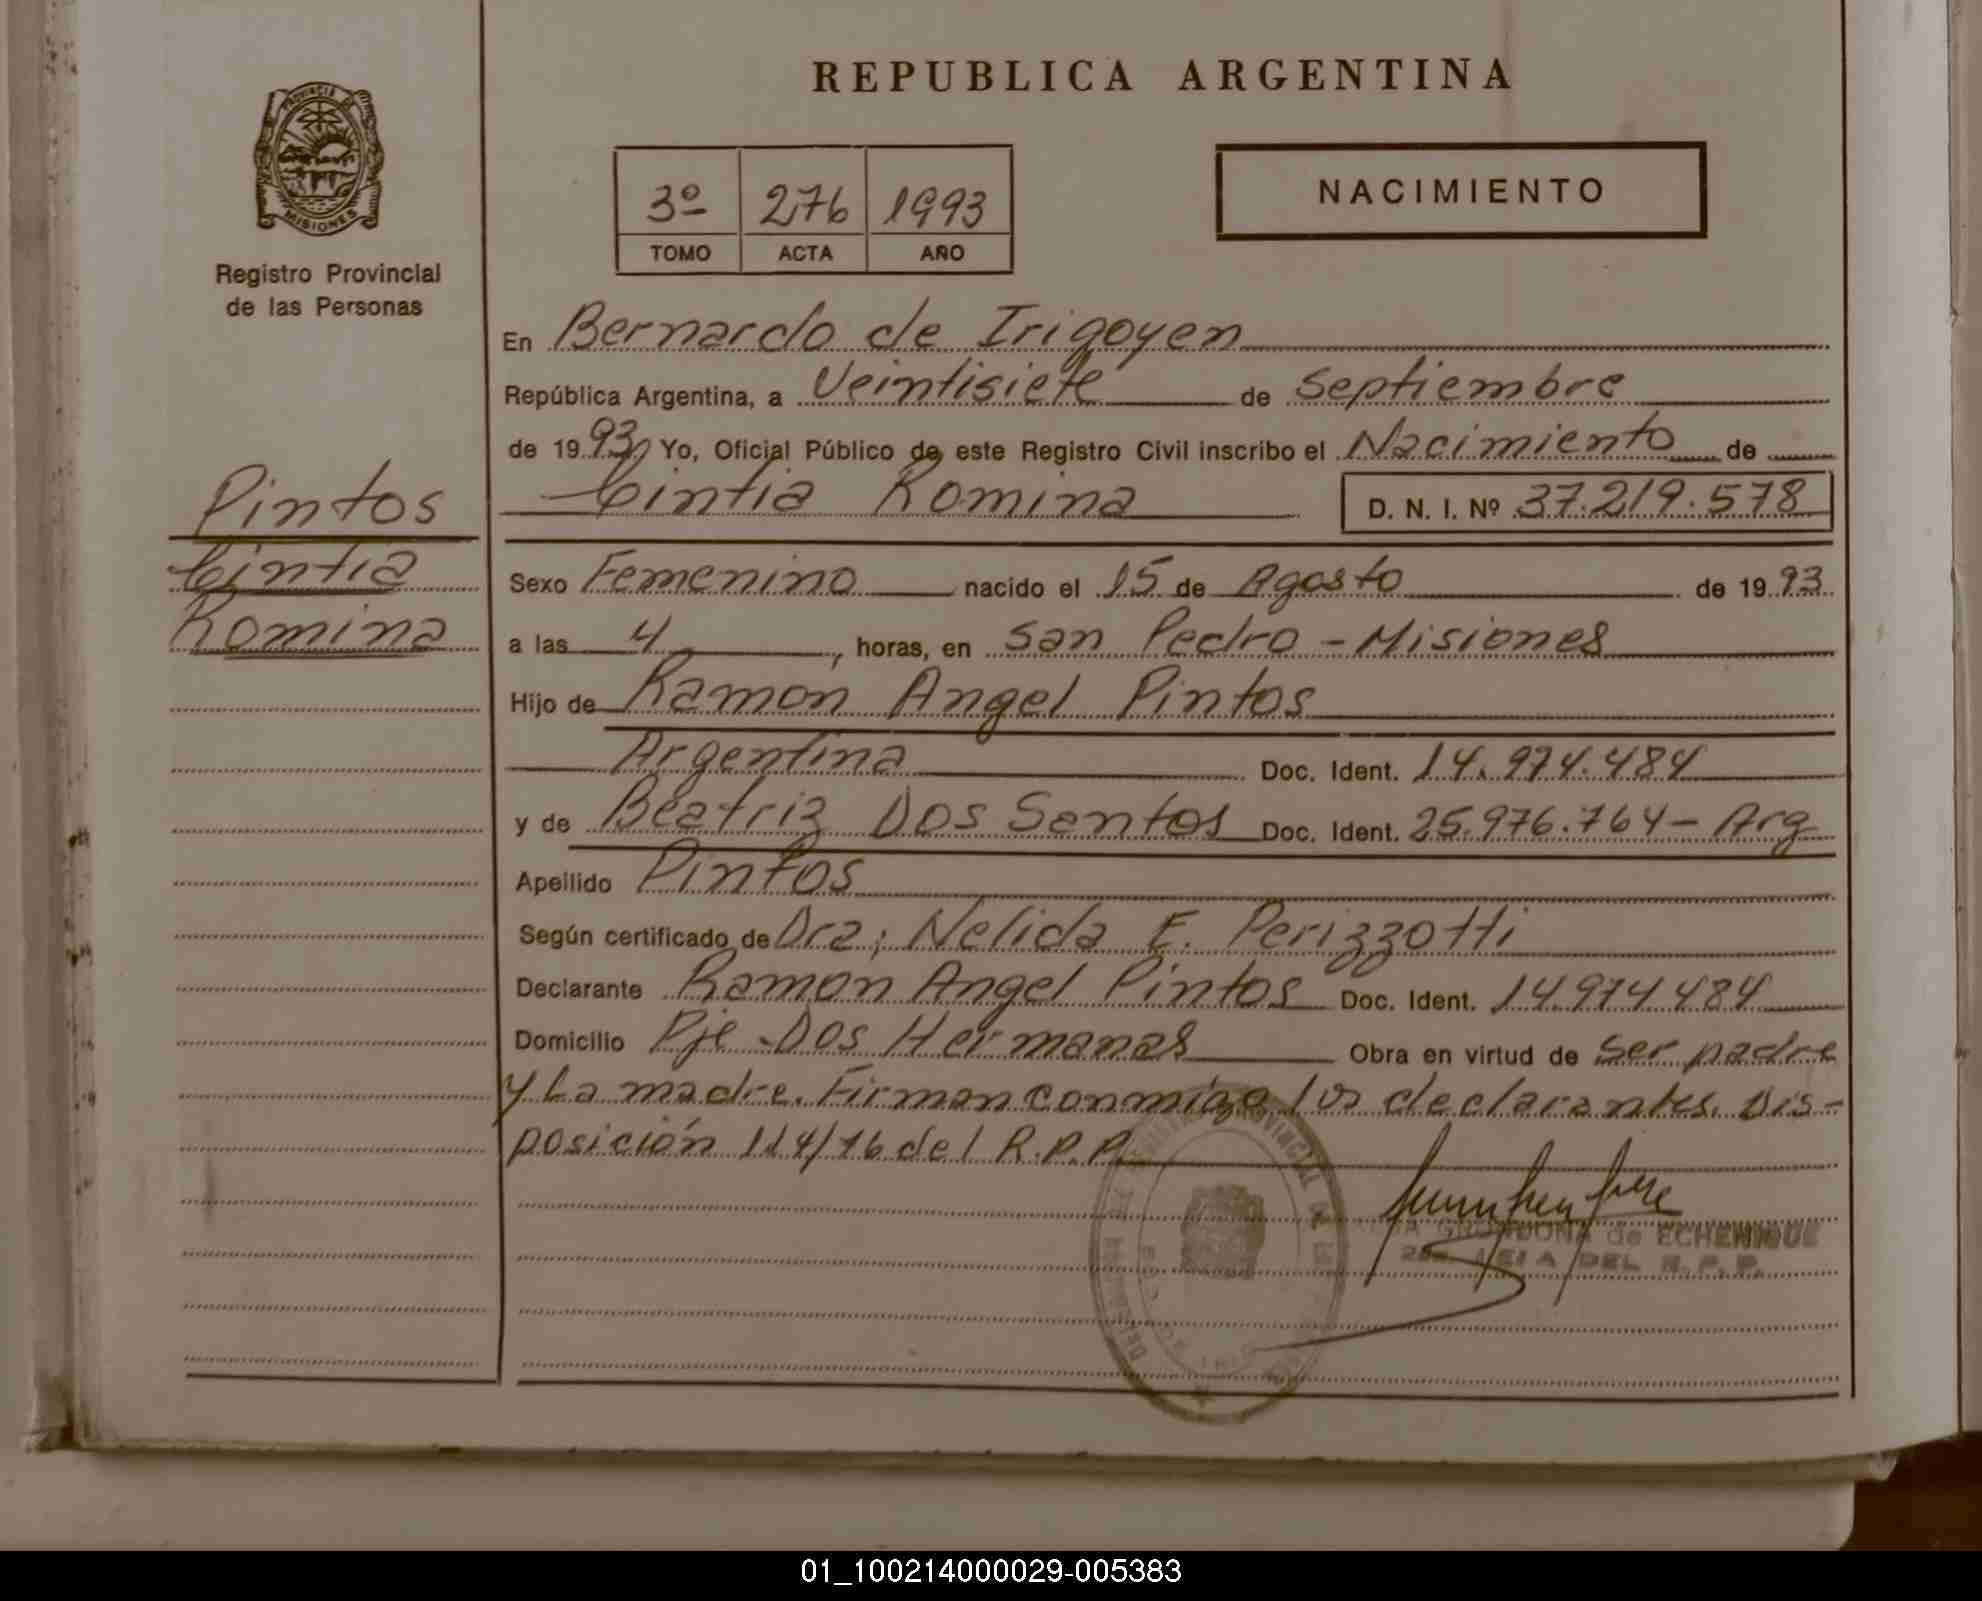 REPUBLICA ARGENTINA
PROVINCIA DE
MISIONES
Registro Provincial
de las Personas
3º 276 1993
TOMO ACTA AÑO
NACIMIENTO
En Bernardo de Irigoyen
República Argentina, a Veintisiete de Septiembre
de 1993 Yo, Oficial Público de este Registro Civil inscribo el Nacimiento de
Cintia Romina D. N. I. Nº 37.219.578
Pintos
Cintia
Romina
Sexo Femenino nacido el 15 de Agosto de 1993
a las 4, horas, en San Pedro - Misiones
Hijo de Ramón Angel Pintos
Argentina Doc. Ident. 14.974.484
y de Beatriz Dos Santos Doc. Ident. 25.976.764 - Arg
Apellido Pintos
Según certificado de Dra; Nelida E. Perizzotti
Declarante Ramon Angel Pintos Doc. Ident. 14.974.484
Domicilio Pje Dos Hermanas Obra en virtud de ser padre
y La madre. Firman conmigo los declarantes. Dis-
posición 114/76 del R.P.P.
GRONDONA de ECHENIQUE
DEL R.P.P.
01_100214000029-005383